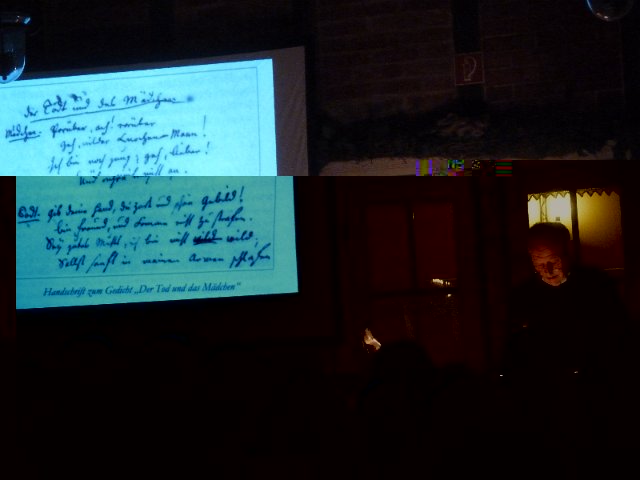 der Tod und das Mädchen
Mädchen. Vorüber, ach! vorüber
Geh, wilder Knochen-Mann!
Ich bin noch jung; geh, Lieber!
Und nicht an.
Tod. Gib deine Hand, du zart und schön Gebild!
bin Freund, und komme nicht zu strafen.
Sey gutes Muths, ich bin nicht wild;
Sollst sanft in meinen Armen schlafen
Handschrift zum Gedicht „Der Tod und das Mädchen“